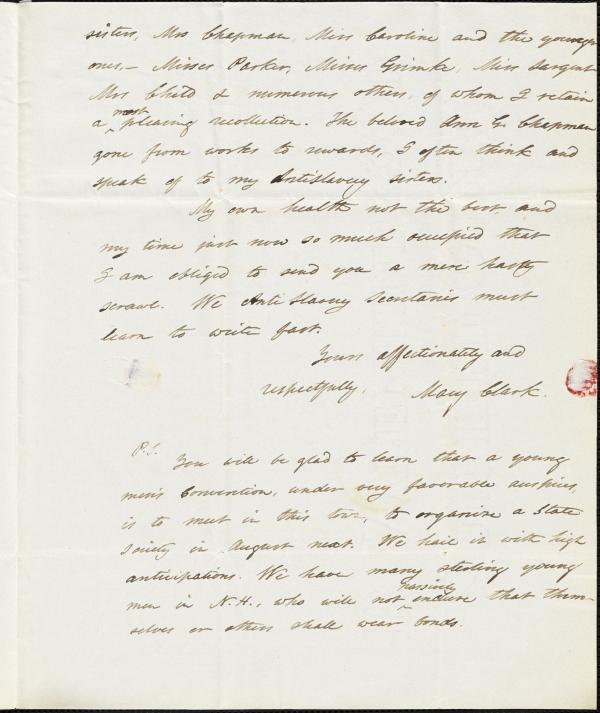 sisters, Mrs Chapman, Miss Caroline and the younger
ones,— Misses Parker, Misses Grimke, Miss Sargent
Mrs Child & numerous others, of whom I retain
a most pleasing recollection. The beloved Ann G. Chapman
gone from works to rewards, I often think and
speak of to my Antislavery sisters.
My own health not the best, and
my time just now so much occupied that
I am obliged to send you a mere hasty
scrawl. We Anti Slavery Secretaries must
learn to write fast.
Yours affectionately and
respectfully, Mary Clark.
P.S. You will be glad to learn that a young
men's Convention, under very favorable auspices,
is to meet in this town, to organize a State
Society in August next. We hail it with high
anticipations. We have many sterling young
men in N.H., who will not passively endure that them-
selves or others shall wear bonds.